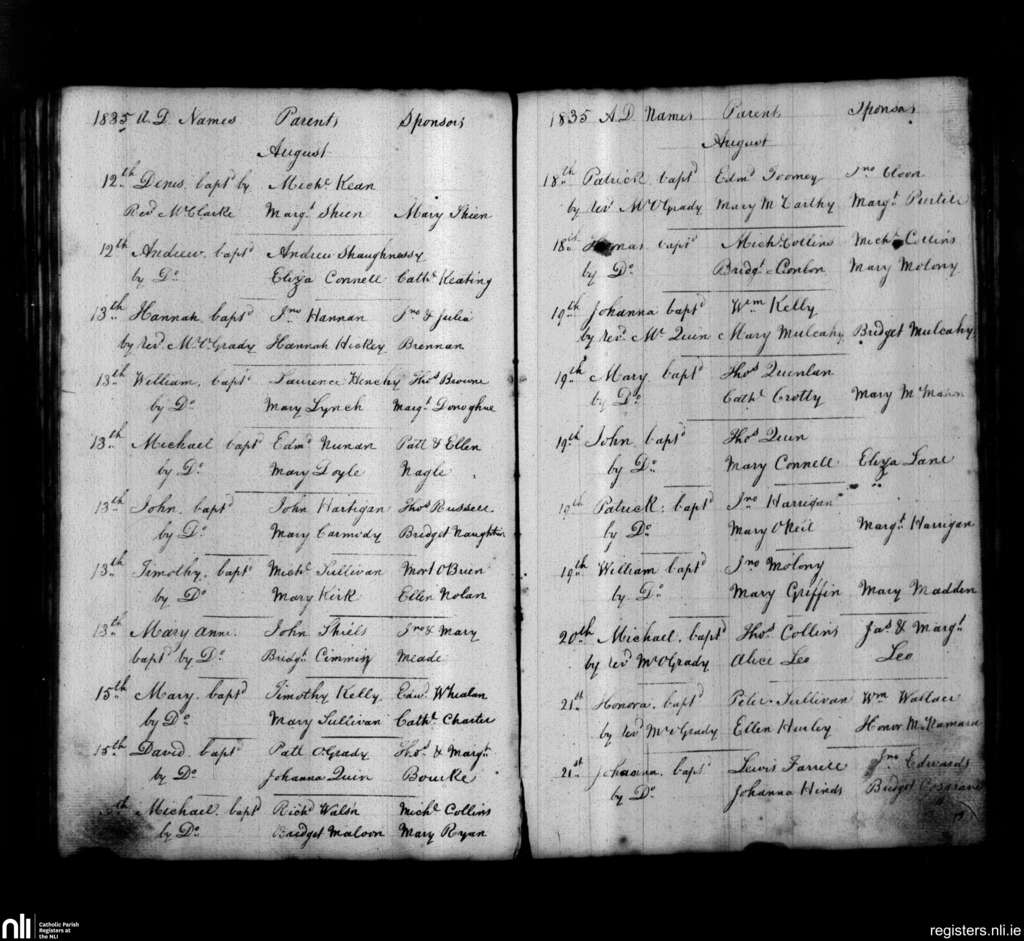 1835 A.D. Names Parents Sponsors
August
12th Denis bapt'd by Mich'l Kean
Rev'd Mr Clarke Marg't Shien Mary Shien
12th Andrew bapt'd Andrew Shaughnessy
by Do Eliza Connell Cath'e Keating
13th Hannah bapt'd Jno Hannan Jno & Julia
by Rev'd Mr O'Grady Hannah Hickey Brennan
13th William bapt'd Laurence Henchy Thos Browne
by Do Mary Lynch Marg't Donoghue
13th Michael bapt'd Edm'd Nunan Patt & Ellen
by Do Mary Doyle Nagle
13th John bapt'd John Hartigan Thos Russell
by Do Mary Carmody Bridget Naughtin
13th Timothy bapt'd Mich'l Sullivan Mort O'Brien
by Do Mary Kirk Ellen Nolan
13th Mary Anne John Shiels Jno & Mary
bapt'd by Do Bridg't Meade
15th Mary bapt'd Timothy Kelly Edw'd Whealan
by Do Mary Sullivan Cath'e Charter
15th David bapt'd Patt O'Grady Thos & Marg't
by Do Johanna Quin Bourke
Michael bapt'd Rich'd Walsh Mich'l Collins
by Do Bridget Maloon Mary Ryan
1835 A.D. Names Parents Sponsors
August
18th Patrick bapt'd Edm'd Toomey Jno
by Rev'd Mr O'Grady Mary McCarthy Marg't Purtill
18th Thomas bapt'd Mich'l Collins Mich'l Collins
by Do Bridg't Conlon Mary Molony
19th Johanna bapt'd Wm Kelly
by Rev'd Mr Quin Mary Mulcahy Bridget Mulcahy
19th Mary bapt'd Thos Quinlan
by Do Cath'e Crotty Mary McMahon
19th John bapt'd Thos Quin
by Do Mary Connell Eliza Lane
19th Patrick bapt'd Jno Harrigan
by Do Mary O'Neil Marg't Harrigan
19th William bapt'd Jno Molony
by Do Mary Griffin Mary Madden
20th Michael bapt'd Thos Collins Jas & Marg't
by Rev'd Mr O'Grady Alice Leo Leo
21st Honora bapt'd Peter Sullivan Wm Wallace
by Rev'd Mr O'Grady Ellen Hurley Honor McNamara
21st Johanna bapt'd Lewis Farrell Jno Edwards
by Do Johanna Hinds Bridget
nli
Catholic Parish
Registers at
the NLI
registers.nli.ie